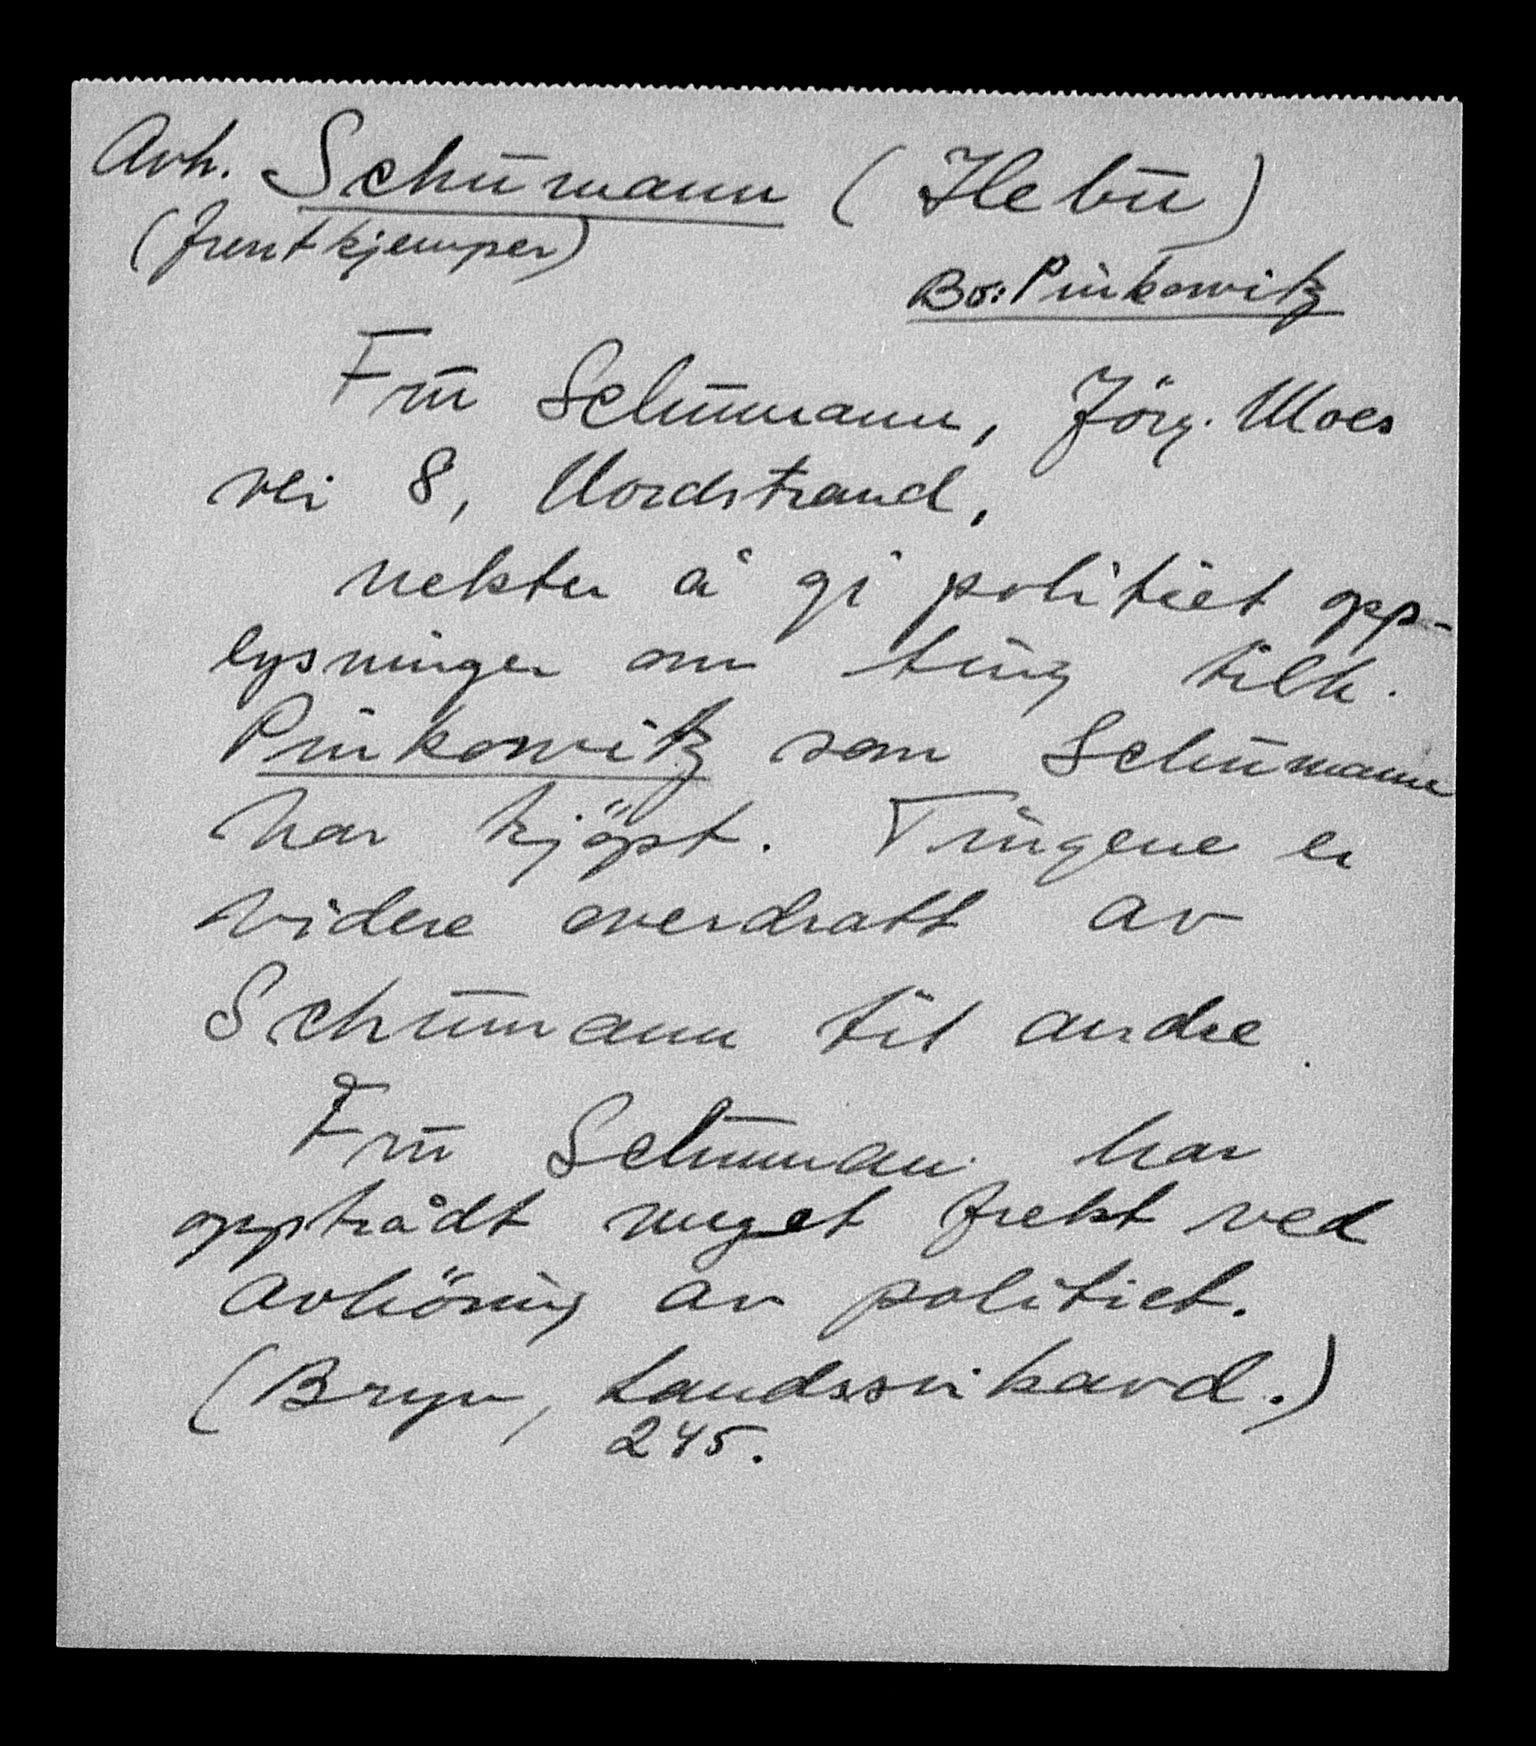 Avh. Schumann (Ilebu)
(frontkjemper)
Bo: Pinkowitz
Fru Schumann, Jörg. Moes
vei 8, Nordstrand,
nekter å gi politiet opp-
lysninger om ting tilh.
Pinkowitz som Schumann
har kjöpt. Tingene er
videre overdratt av
Schumann til andre.
Fru Schumann har
opptrådt meget frekt ved
avhöring av politiet.
(Bryn, Landssvikavd.)
245.